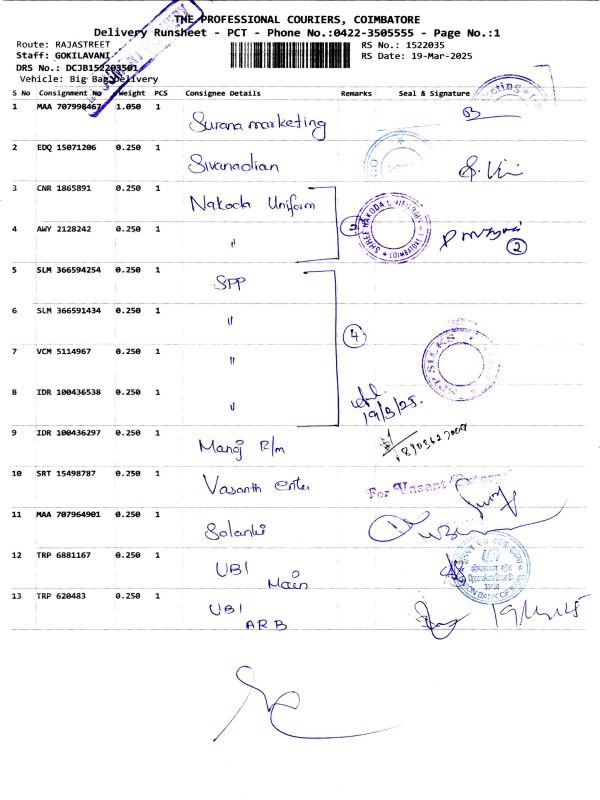 THE PROFESSIONAL COURIERS, COIMBATORE
Delivery Runsheet - PCT - Phone No.:0422-3505555 - Page No.:1
Route: RAJASTREET RS No.: 1522035
Staff: GOKILAVANI RS Date: 19-Mar-2025
DRS No.: DCJB152203501
Vehicle: Big Bag Delivery
S No Consignment No Weight PCS Consignee Details Remarks Seal & Signature
1 MAA 707998467 1.050 1 Surana marketing
2 EDQ 15071206 0.250 1 Sivanadian
3 CNR 1865891 0.250 1 Nakoda Uniform
4 AWY 2128242 0.250 1 " 2
SHREE NAKODA UNIFORMS
5 SLM 366594254 0.250 1 SPP
6 SLM 366591434 0.250 1 " 4
7 VCM 5114967 0.250 1 "
SPP SILKS
8 IDR 100436538 0.250 1 " 19/3/25.
9 IDR 100436297 0.250 1 Manoj R/m
10 SRT 15498787 0.250 1 Vasanth Enter For Vasant
11 MAA 707964901 0.250 1 Solanki
12 TRP 6881167 0.250 1 UBI Main
UNION BANK OF
13 TRP 620483 0.250 1 UBI ARB